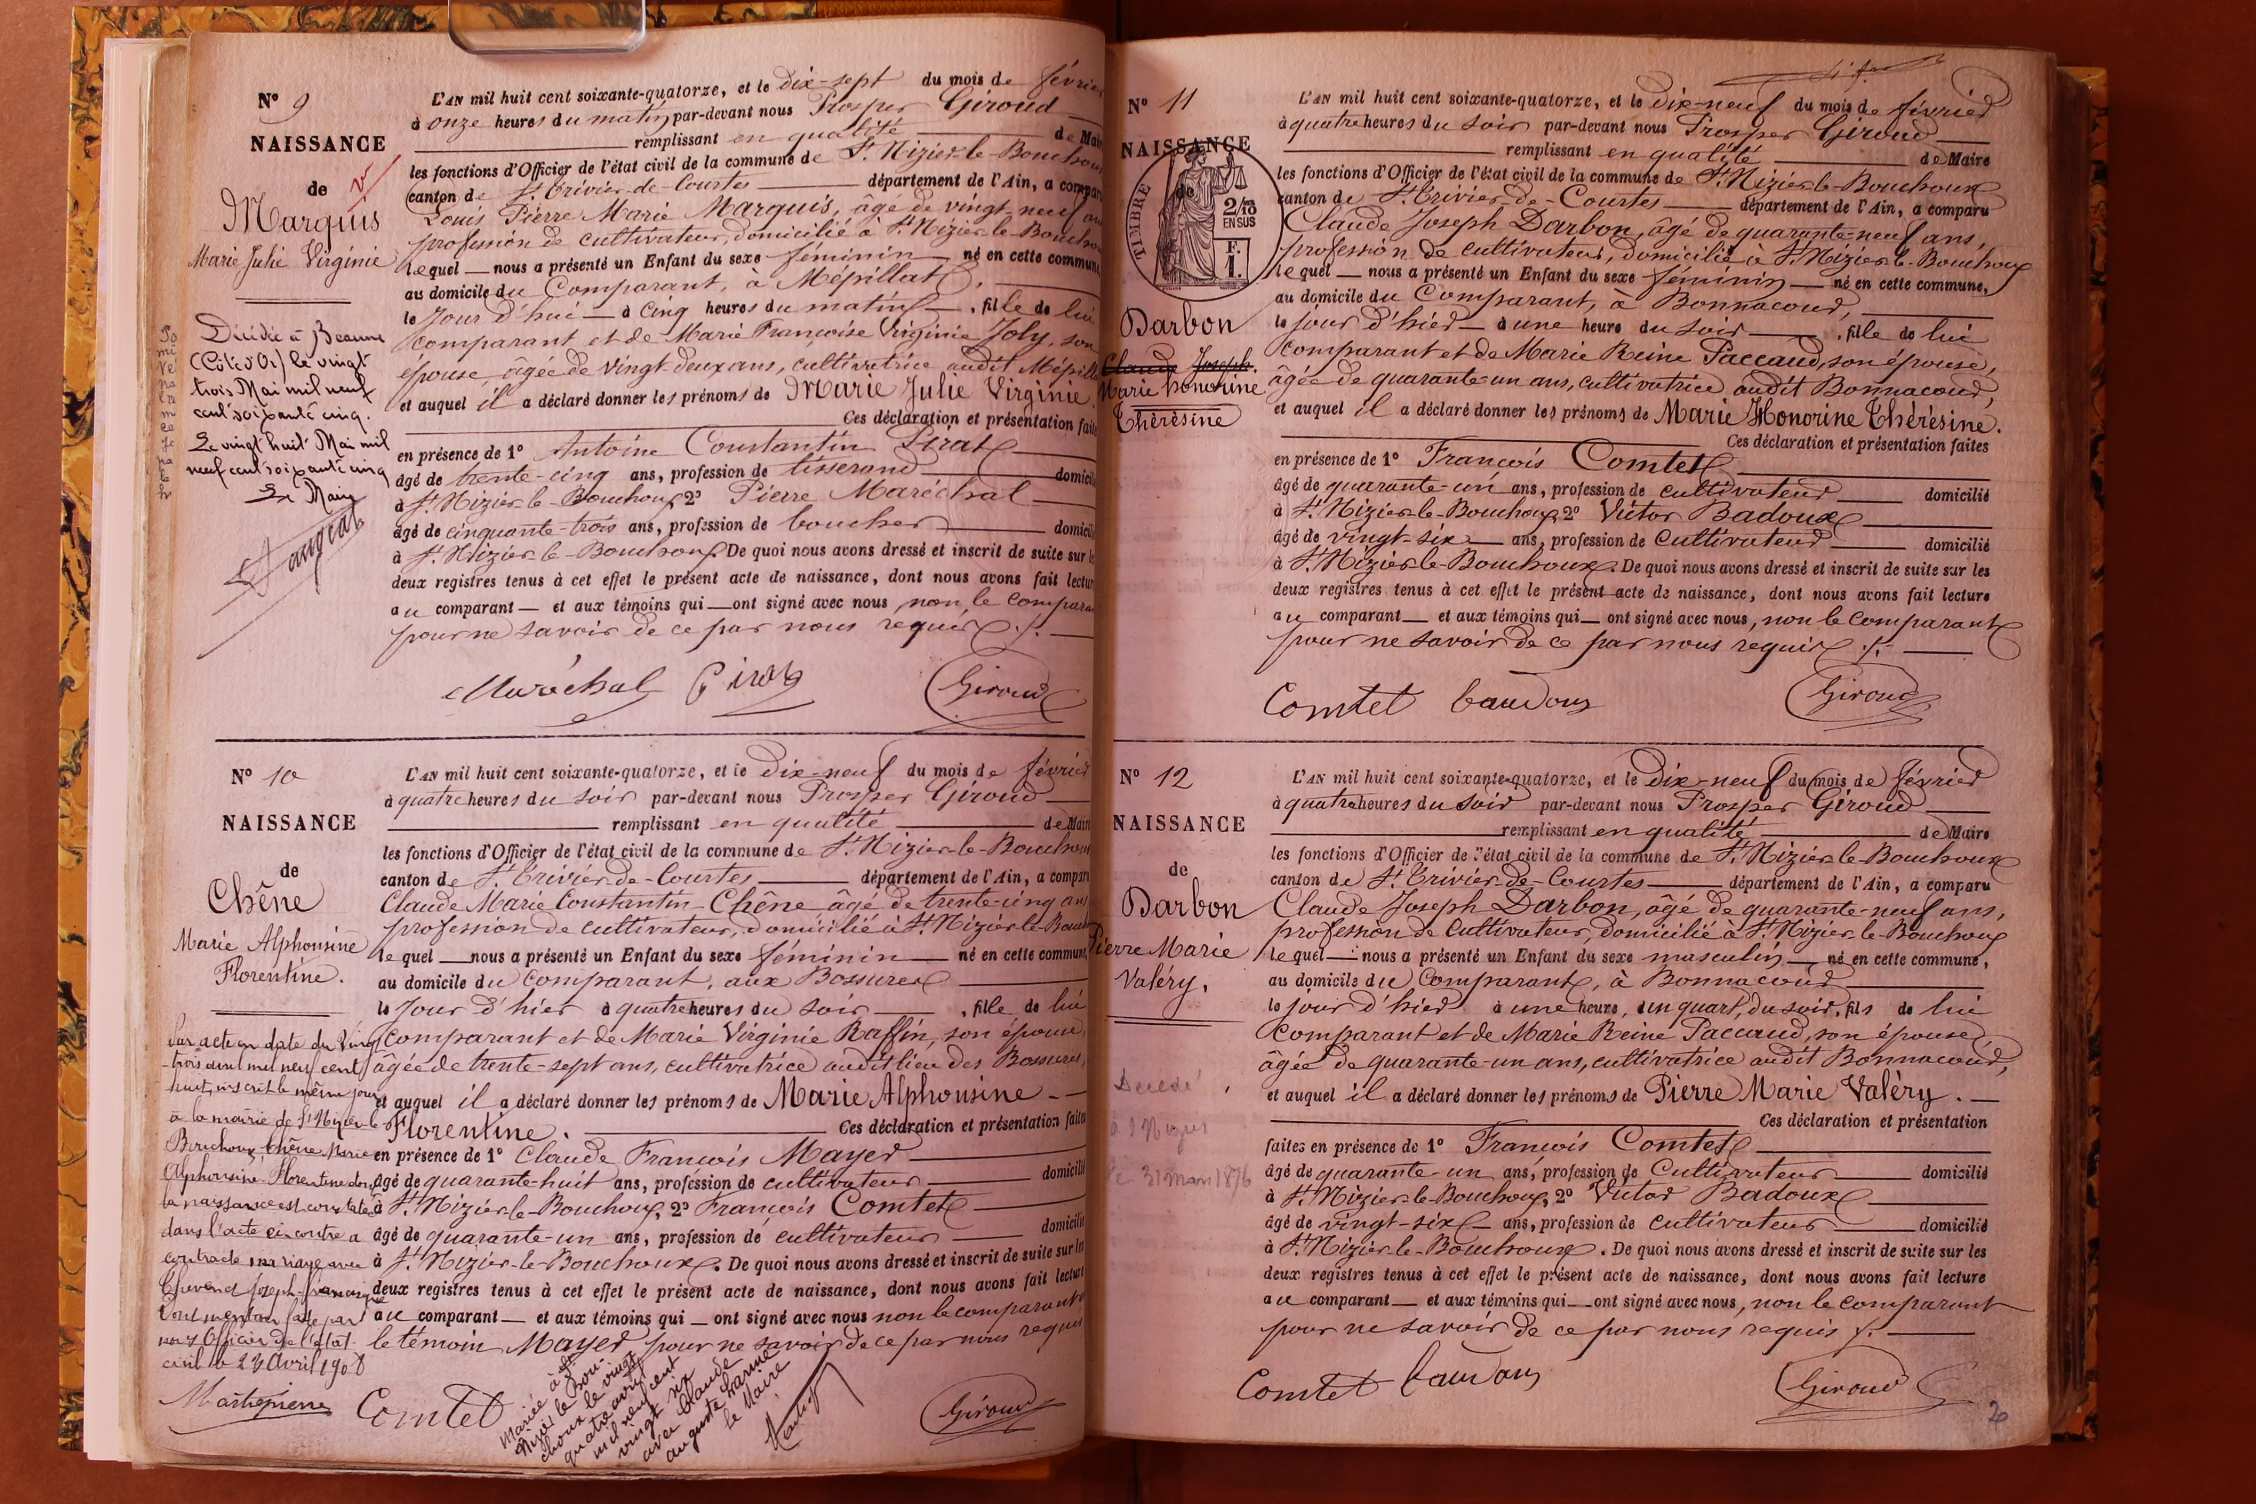 N° 9
NAISSANCE
de
Marquis
Marie Julie Virginie
Décédée à Beaune
(Côte d'Or) le vingt
trois Mai mil neuf
cent soixante cinq.
Le vingt huit Mai mil
neuf cent soixante cinq
Le Maire
L'AN mil huit cent soixante-quatorze, et le dix-sept du mois de février
à onze heures du matin par-devant nous Prosper Giroud
remplissant en qualité de Maire
les fonctions d'Officier de l'état civil de la commune de St. Nizier-le-Bouchoux
canton de St. Trivier-de-Courtes département de l'Ain, a comparu
Louis Pierre Marie Marquis, âgé de vingt-neuf ans
profession de cultivateur, domicilié à St. Nizier-le-Bouchoux
lequel nous a présenté un Enfant du sexe féminin né en cette commune,
au domicile du Comparant, à Mépillat,
le jour d'hui à cinq heures du matin, fille de lui
comparant et de Marie Françoise Virginie Joly, son
épouse, âgée de vingt deux ans, cultivatrice audit Mépillat
et auquel il a déclaré donner les prénoms de Marie Julie Virginie.
Ces déclaration et présentation faites
en présence de 1° Antoine Constantin Pirat
âgé de trente-cinq ans, profession de tisserand domicilié
à St. Nizier-le-Bouchoux, 2° Pierre Maréchal
âgé de cinquante-trois ans, profession de boucher domicilié
à St. Nizier-le-Bouchoux. De quoi nous avons dressé et inscrit de suite sur les
deux registres tenus à cet effet le présent acte de naissance, dont nous avons fait lecture
au comparant et aux témoins qui ont signé avec nous, non le comparant
pour ne savoir de ce par nous requis ./.
Maréchal Pirat Giroud
N° 10
NAISSANCE
de
Chêne
Marie Alphonsine
Florentine.
Par acte en date du Vingt
trois avril mil neuf cent
huit, inscrit le même jour
à la mairie de St Nizier le
Bouchoux, Chêne Marie
Alphonsine Florentine dont
la naissance est constatée
dans l'acte ci-contre a
contracté mariage avec
Joseph
Dont mention faite par
nous Officier de l'état
civil le 23 Avril 1908
L'AN mil huit cent soixante-quatorze, et le dix-neuf du mois de février
à quatre heures du soir par-devant nous Prosper Giroud
remplissant en qualité de Maire
les fonctions d'Officier de l'état civil de la commune de St. Nizier-le-Bouchoux
canton de St. Trivier-de-Courtes département de l'Ain, a comparu
Claude Marie Constantin Chêne âgé de trente-cinq ans
profession de cultivateur, domicilié à St. Nizier-le-Bouchoux
lequel nous a présenté un Enfant du sexe féminin né en cette commune,
au domicile du comparant, aux Bossures
le jour d'hier à quatre heures du soir, fille de lui
comparant et de Marie Virginie Raffin, son épouse,
âgée de trente-sept ans, cultivatrice audit lieu des Bossures,
et auquel il a déclaré donner les prénoms de Marie Alphonsine
Florentine. Ces déclaration et présentation faites
en présence de 1° Claude François Mayer
âgé de quarante-huit ans, profession de cultivateur domicilié
à St. Nizier-le-Bouchoux, 2° François Comtet
âgé de quarante-un ans, profession de cultivateur domicilié
à St. Nizier-le-Bouchoux. De quoi nous avons dressé et inscrit de suite sur les
deux registres tenus à cet effet le présent acte de naissance, dont nous avons fait lecture
au comparant et aux témoins qui ont signé avec nous non le comparant
le témoin Mayer pour ne savoir de ce par nous requis
Comtet Giroud
Mariée à St
Nizier le Bou-
choux le vingt
quatre avril
mil neuf cent
vingt six
avec Claude
auguste
Le Maire
N° 11
NAISSANCE
de
TIMBRE
2/10
EN SUS
F.
1.
Darbon
Claude Joseph.
Marie Honorine
Thérèsine
L'AN mil huit cent soixante-quatorze, et le dix-neuf du mois de février
à quatre heures du soir par-devant nous Prosper Giroud
remplissant en qualité de Maire
les fonctions d'Officier de l'état civil de la commune de St. Nizier-le-Bouchoux
canton de St. Trivier-de-Courtes département de l'Ain, a comparu
Claude Joseph Darbon, âgé de quarante-neuf ans,
profession de cultivateur, domicilié à St. Nizier-le-Bouchoux
lequel nous a présenté un Enfant du sexe féminin né en cette commune,
au domicile du Comparant, à Bonnacour,
le jour d'hier à une heure du soir, fille de lui
comparant et de Marie Reine Paccaud, son épouse,
âgée de quarante-un ans, cultivatrice audit Bonnacour,
et auquel il a déclaré donner les prénoms de Marie Honorine Thérèsine.
Ces déclaration et présentation faites
en présence de 1° François Comtet
âgé de quarante-un ans, profession de cultivateur domicilié
à St. Nizier-le-Bouchoux, 2° Victor Badoux
âgé de vingt-six ans, profession de cultivateur domicilié
à St. Nizier-le-Bouchoux. De quoi nous avons dressé et inscrit de suite sur les
deux registres tenus à cet effet le présent acte de naissance, dont nous avons fait lecture
au comparant et aux témoins qui ont signé avec nous, non le comparant
pour ne savoir de ce par nous requis ./.
Comtet baudoux Giroud
N° 12
NAISSANCE
de
Darbon
Pierre Marie
Valéry.
Décédé
à St Nizier
le 31 Mars 1876
L'AN mil huit cent soixante-quatorze, et le dix-neuf du mois de février
à quatre heures du soir par-devant nous Prosper Giroud
remplissant en qualité de Maire
les fonctions d'Officier de l'état civil de la commune de St. Nizier-le-Bouchoux
canton de St. Trivier-de-Courtes département de l'Ain, a comparu
Claude Joseph Darbon, âgé de quarante-neuf ans,
profession de cultivateur, domicilié à St. Nizier-le-Bouchoux
lequel nous a présenté un Enfant du sexe masculin né en cette commune,
au domicile du Comparant, à Bonnacour
le jour d'hier à une heure, un quart, du soir, fils de lui
comparant et de Marie Reine Paccaud, son épouse
âgée de quarante-un ans, cultivatrice audit Bonnacour,
et auquel il a déclaré donner les prénoms de Pierre Marie Valéry.
Ces déclaration et présentation
faites en présence de 1° François Comtet
âgé de quarante-un ans, profession de cultivateur domicilié
à St. Nizier-le-Bouchoux, 2° Victor Badoux
âgé de vingt-six ans, profession de cultivateur domicilié
à St. Nizier-le-Bouchoux. De quoi nous avons dressé et inscrit de suite sur les
deux registres tenus à cet effet le présent acte de naissance, dont nous avons fait lecture
au comparant et aux témoins qui ont signé avec nous, non le comparant
pour ne savoir de ce par nous requis ./.
Comtet baudoux Giroud